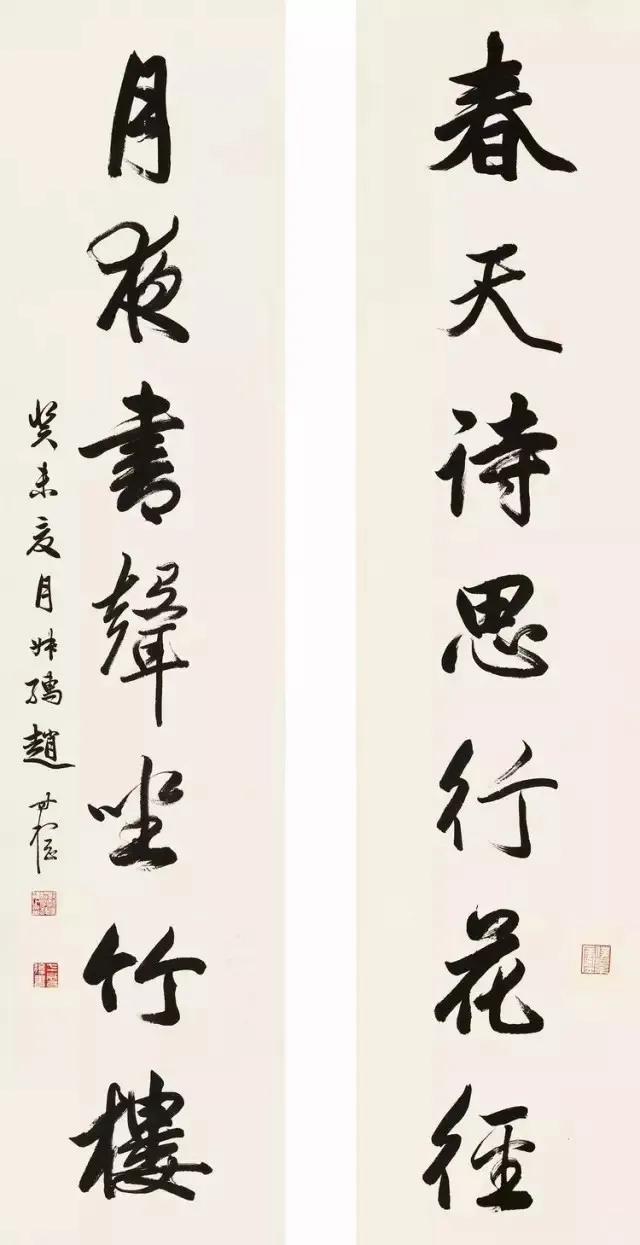 春天詩思行花徑
月夜書聲坐竹樓
癸未夏月趙